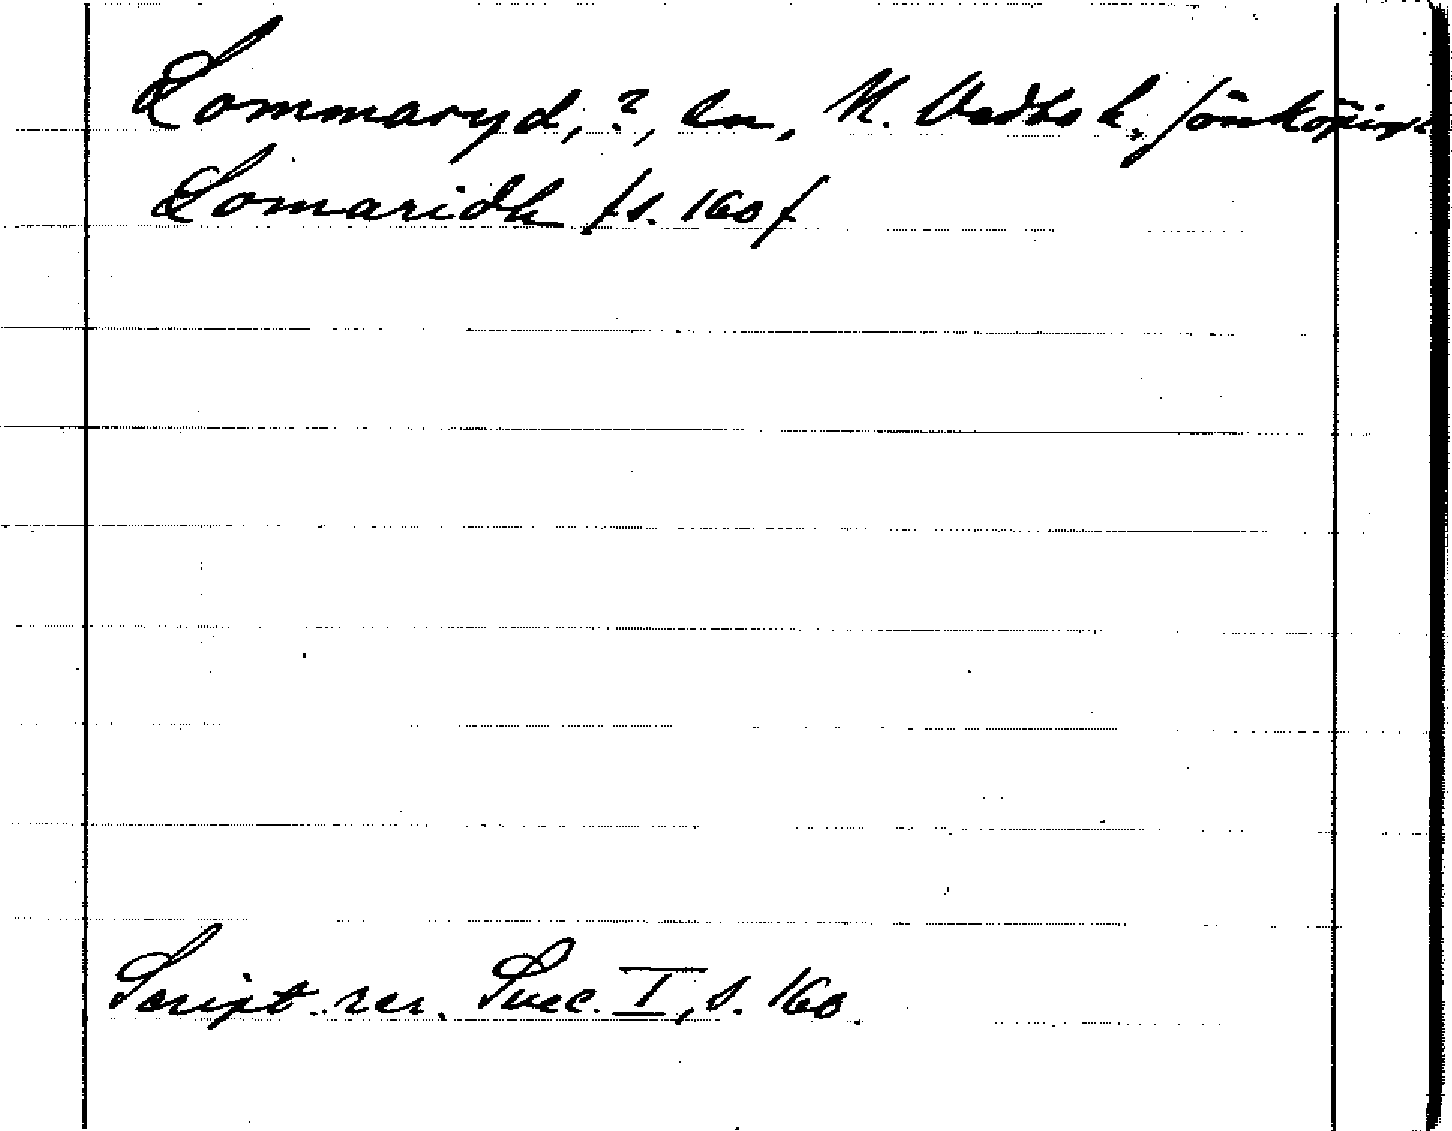 Lommaryd, ?, sn, N. Vedbo h, Jönköpings
Lomaridh /s. 160/
Script. rer. Suec. I, s. 160